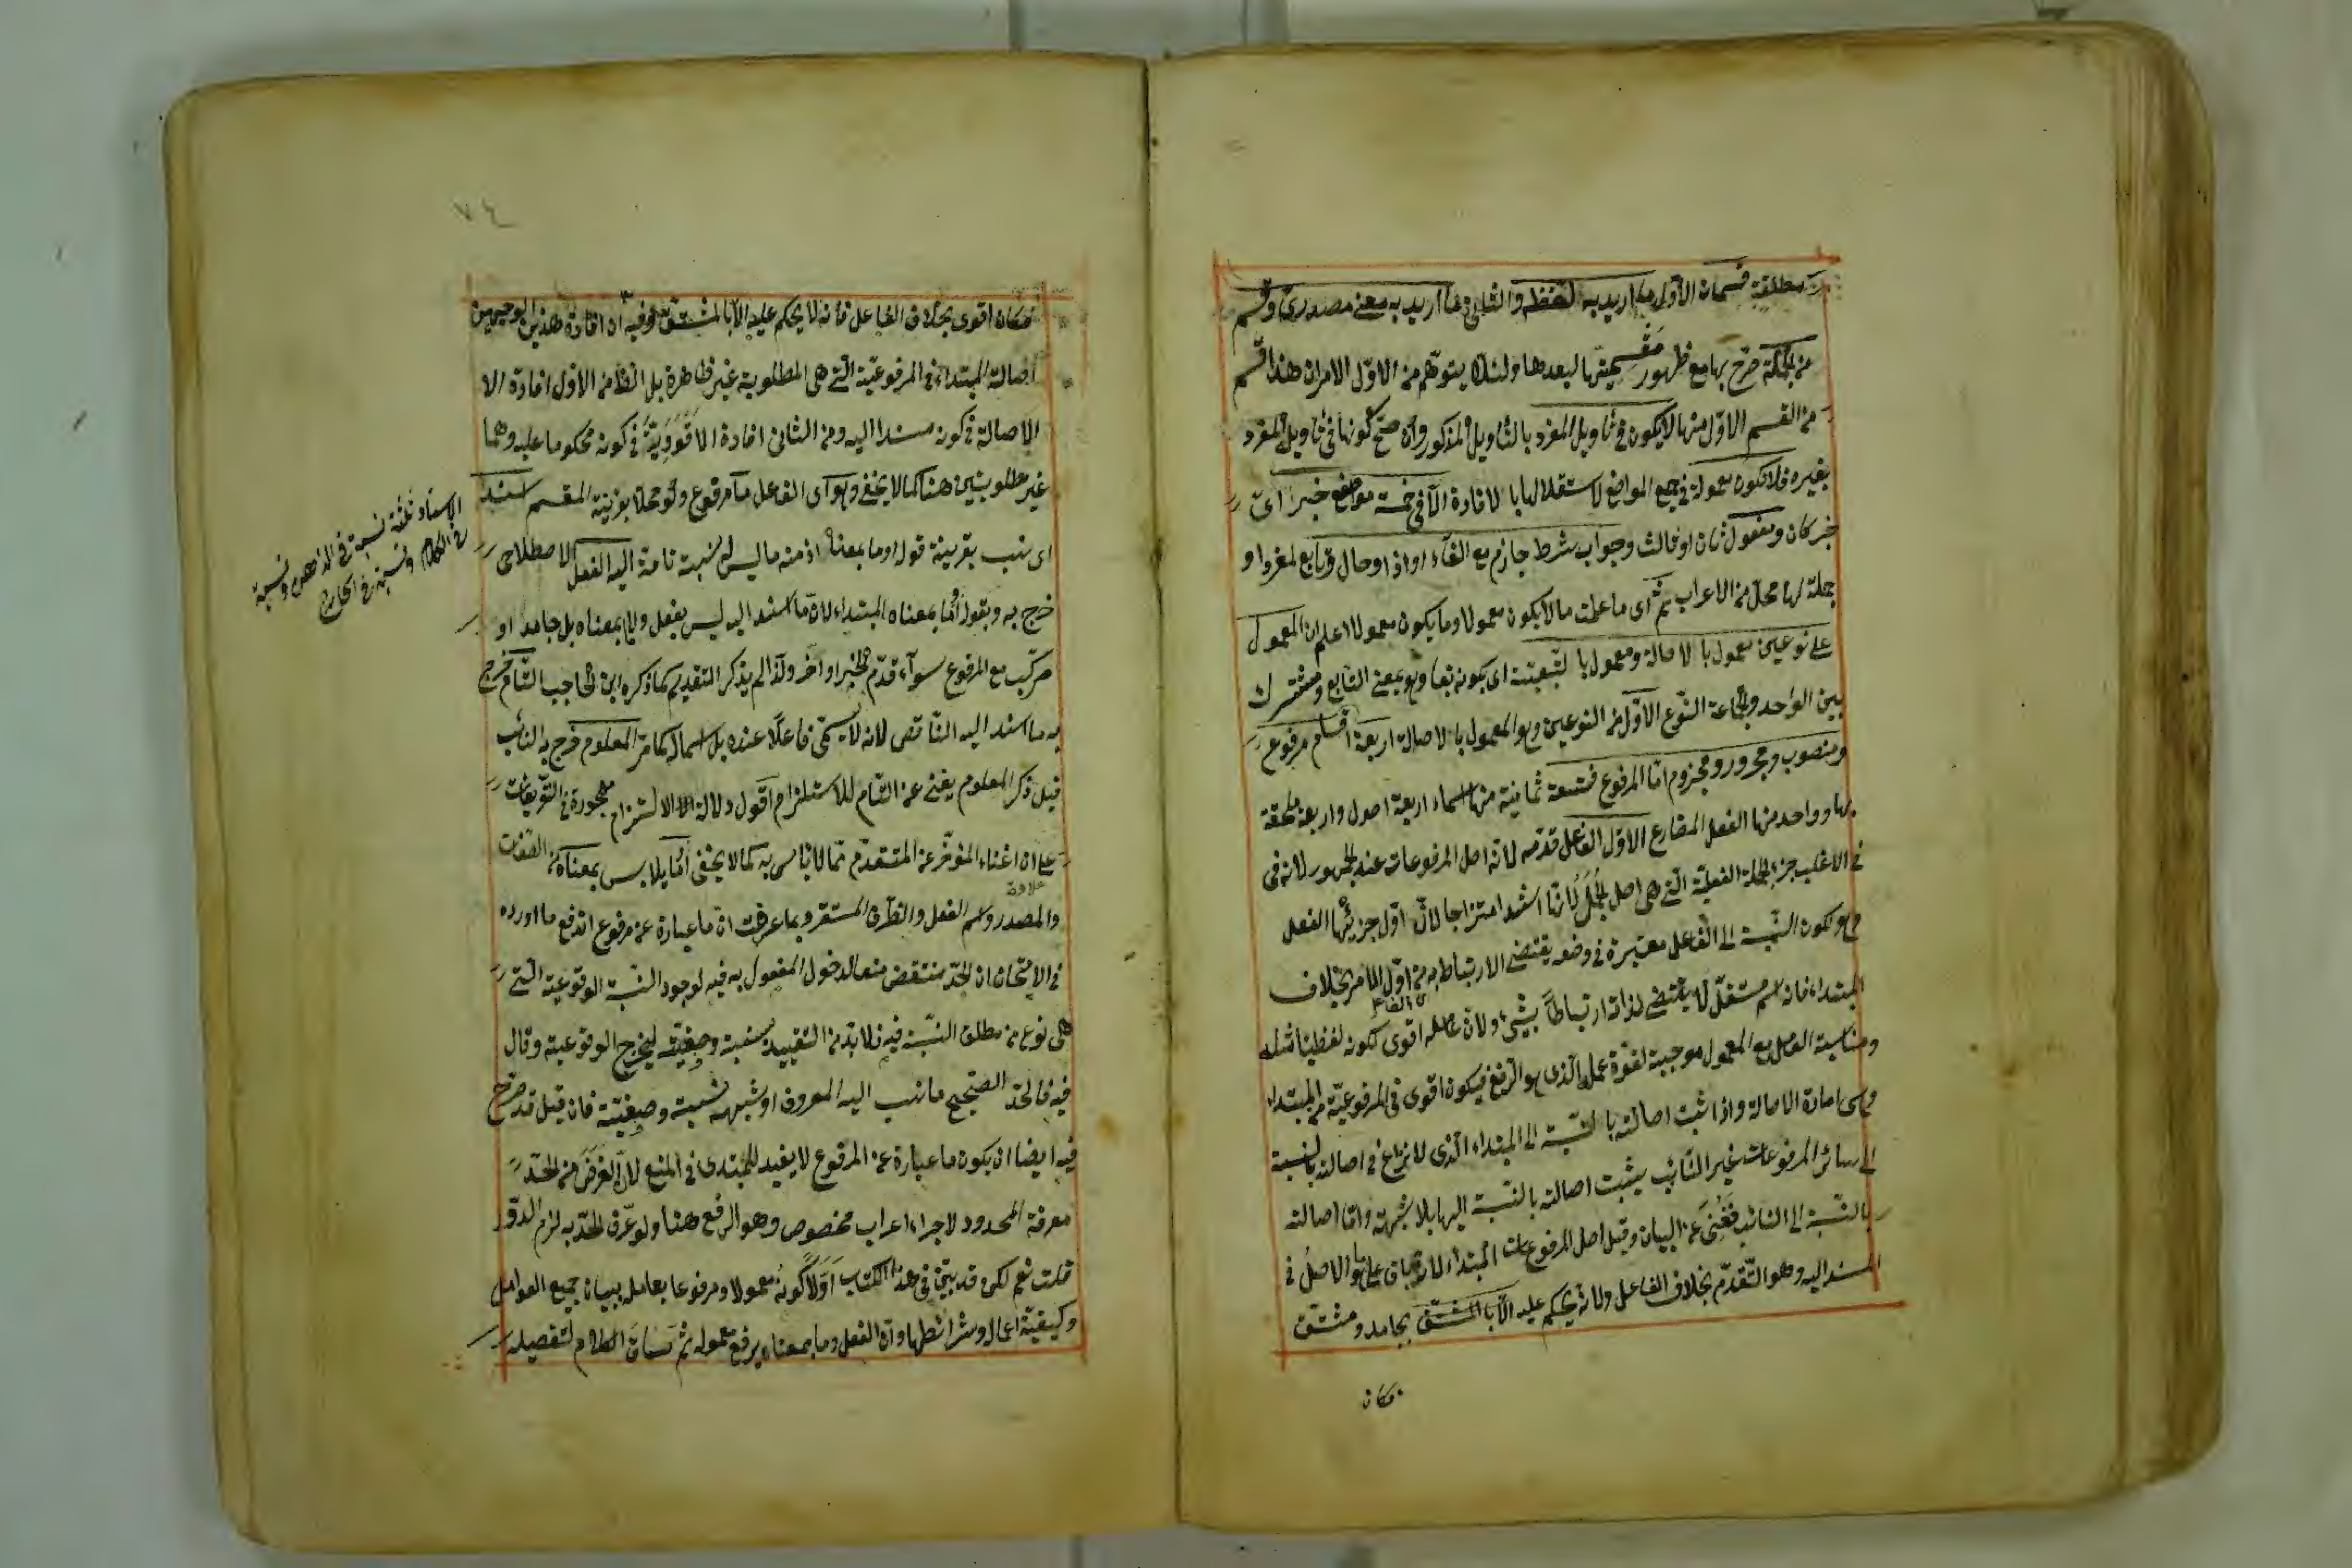 مطلقة قسمان الأول ما اريد به لفظه والثاني ما اريد به معنى مصدرى وقسم
من الجملة صرّح بها مع ظهور مقسميتها لبعدها ولئلا يتوهم من الاول الامران هذا قسم
من القسم الاول منها لا يكون في تأويل المفرد بالتأويل المذكور وان صح كونها في تأويل المفرد
بغيره فلا تكون معمولة في جميع المواضع لاستقلالها بالافادة الا في خمسة مواضع خبر ان
خبر كان ومفعول ثان او ثالث وجواب شرط جازم مع الفاء او اذا وحال وتابع لمفرد او
جملة لها محل من الاعراب ثم اى ما علمت ما لا يكون معمولا وما يكون معمولا اعلم ان المعمول
على نوعين معمول بالاصالة ومعمول بالتبعية اى بكونه تبعا وهو بمعنى التابع ومشترك
بين الواحد والجماعة النوع الاول من النوعين وهو المعمول بالاصالة اربعة اقسام مرفوع
ومنصوب ومجرور ومجزوم اما المرفوع فتسعة ثمانية منها اسماء اربعة اصول واربعة ملحقة
بها وواحد منها الفعل المضارع الاول الفاعل قدمه لانه اصل المرفوعات عند الجمهور لانه في
في الاغلب جزء الجملة الفعلية التي هى اصل الجمل لانها اشد امتزاجا لان اول جزئيها الفعل
وهو لكون النسبة الى الفاعل معتبرة في وضعه يقتضى الارتباط به من اول الامر بخلاف
المبتداء فانه اسم مستقل لا يقتضى لذاته ارتباطا بشئ ولان عامله اقوى لكونه لفظيا
اى الفاعل
ومناسبة العامل مع المعمول موجبة لقوة عمله الذى هو الرفع فيكون اقوى في المرفوعية من المبتداء
وهى امارة الاصالة واذا ثبت اصالته بالنسبة الى المبتداء الذى لا نزاع في اصالته بالنسبة
الى سائر المرفوعات غير النائب يثبت اصالته بالنسبة اليها بلا شبهة واما اصالته
بالنسبة الى النائب فغنى عن البيان وقيل اصل المرفوعات المبتداء لانه باق على ما هو الاصل في
المسند اليه وهو التقدم بخلاف الفاعل ولانه يحكم عليه بجامد ومشتق
فكان
٧٤
فكان اقوى بخلاف الفاعل فانه لا يحكم عليه الا بالمشتق وفيه ان افادة هذين الوجهين
اصالة المبتداء في المرفوعية التي هى المطلوبة غير ظاهرة بل الظ من الاول افادة الا
الاصالة في كونه مسندا اليه ومن الثانى افادة الاقووية في كونه محكوما عليه وهما
غير مطلوبتين هنا كما لا يخفى وهو اى الفاعل ما مرفوع ولو محلا بقرينة المقسم اسند
اى نسب بقرينة قوله او ما بمعناه اذ منه ما ليس له نسبة تامة اليه الفعل الاصطلاحى
خرج به وبقوله او ما بمعناه المبتداء لان ما اسند اليه ليس بفعل ولا بمعناه بل جامد او
مركب مع المرفوع سواء قدم الخبر او اخر ولذا لم يذكر التقديم كما ذكره ابن الحاجب التام خرج
به ما اسند اليه الناقص لانه لا يسمى فاعلا عنده بل اسما له كما مر المعلوم خرج به النائب
قيل ذكر المعلوم يغنى عن التام للاستلزام اقول دلالة الالتزام مهجورة في التعريفات
على ان اغناء المؤخر عن المتقدم مما لا بأس به كما لا يخفى او ما يلابس بمعناه من الصفات
والمصدر واسم الفعل والظرف المستقر وبما عرفت ان ما عبارة عن مرفوع اندفع ما اورده
في الامتحان ان الحد منتقض منعا لدخول المفعول به فيه لوجود النسبة الوقوعية التي
هى نوع من مطلق النسبة فيه فلا بد من التقييد بنسبة وصيغته ليخرج الوقوعية وقال
فيه فالحد الصحيح ما نسب اليه المعروف او شبهه نسبة وصيغية فان قيل قد صرح
فيه ايضا ان يكون ما عبارة عن المرفوع لا يفيد للمبتدى في المنع لان الغرض من الحد
معرفة المحدود لاجراء اعراب مخصوص وهو الرفع هنا ولو عرف الحد به لزم الدور
قلت نعم لكن قد بين في هذا الكتاب اولا كونه معمولا ومرفوعا بعامله ببيان جميع العوامل
وكيفية اعماله وشرائطها وان الفعل وما بمعناه يرفع معموله ثم ساق الكلام لتفصيله
الاسناد ثلثة نسبة في الذهن ونسبة
في الكلام ونسبة في الخارج